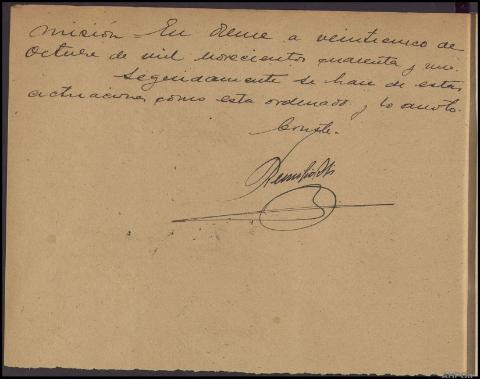 misión = En Orense a veinticinco de
Octubre de mil novecientos cuarenta y uno.
Seguidamente se hace de estas
actuaciones como esta ordenado y lo anoto.
Conste.